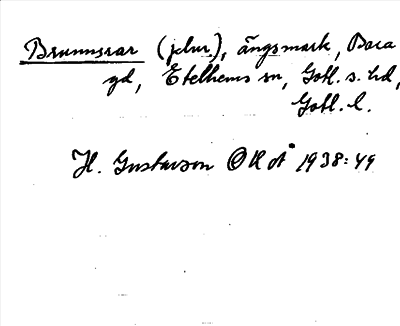 Brunnsrar (plur), ängsmark, Bara
gd, Etelhems sn, Gotl. s. hd,
Gotl. l.
H. Gustavson OKA 1938:49